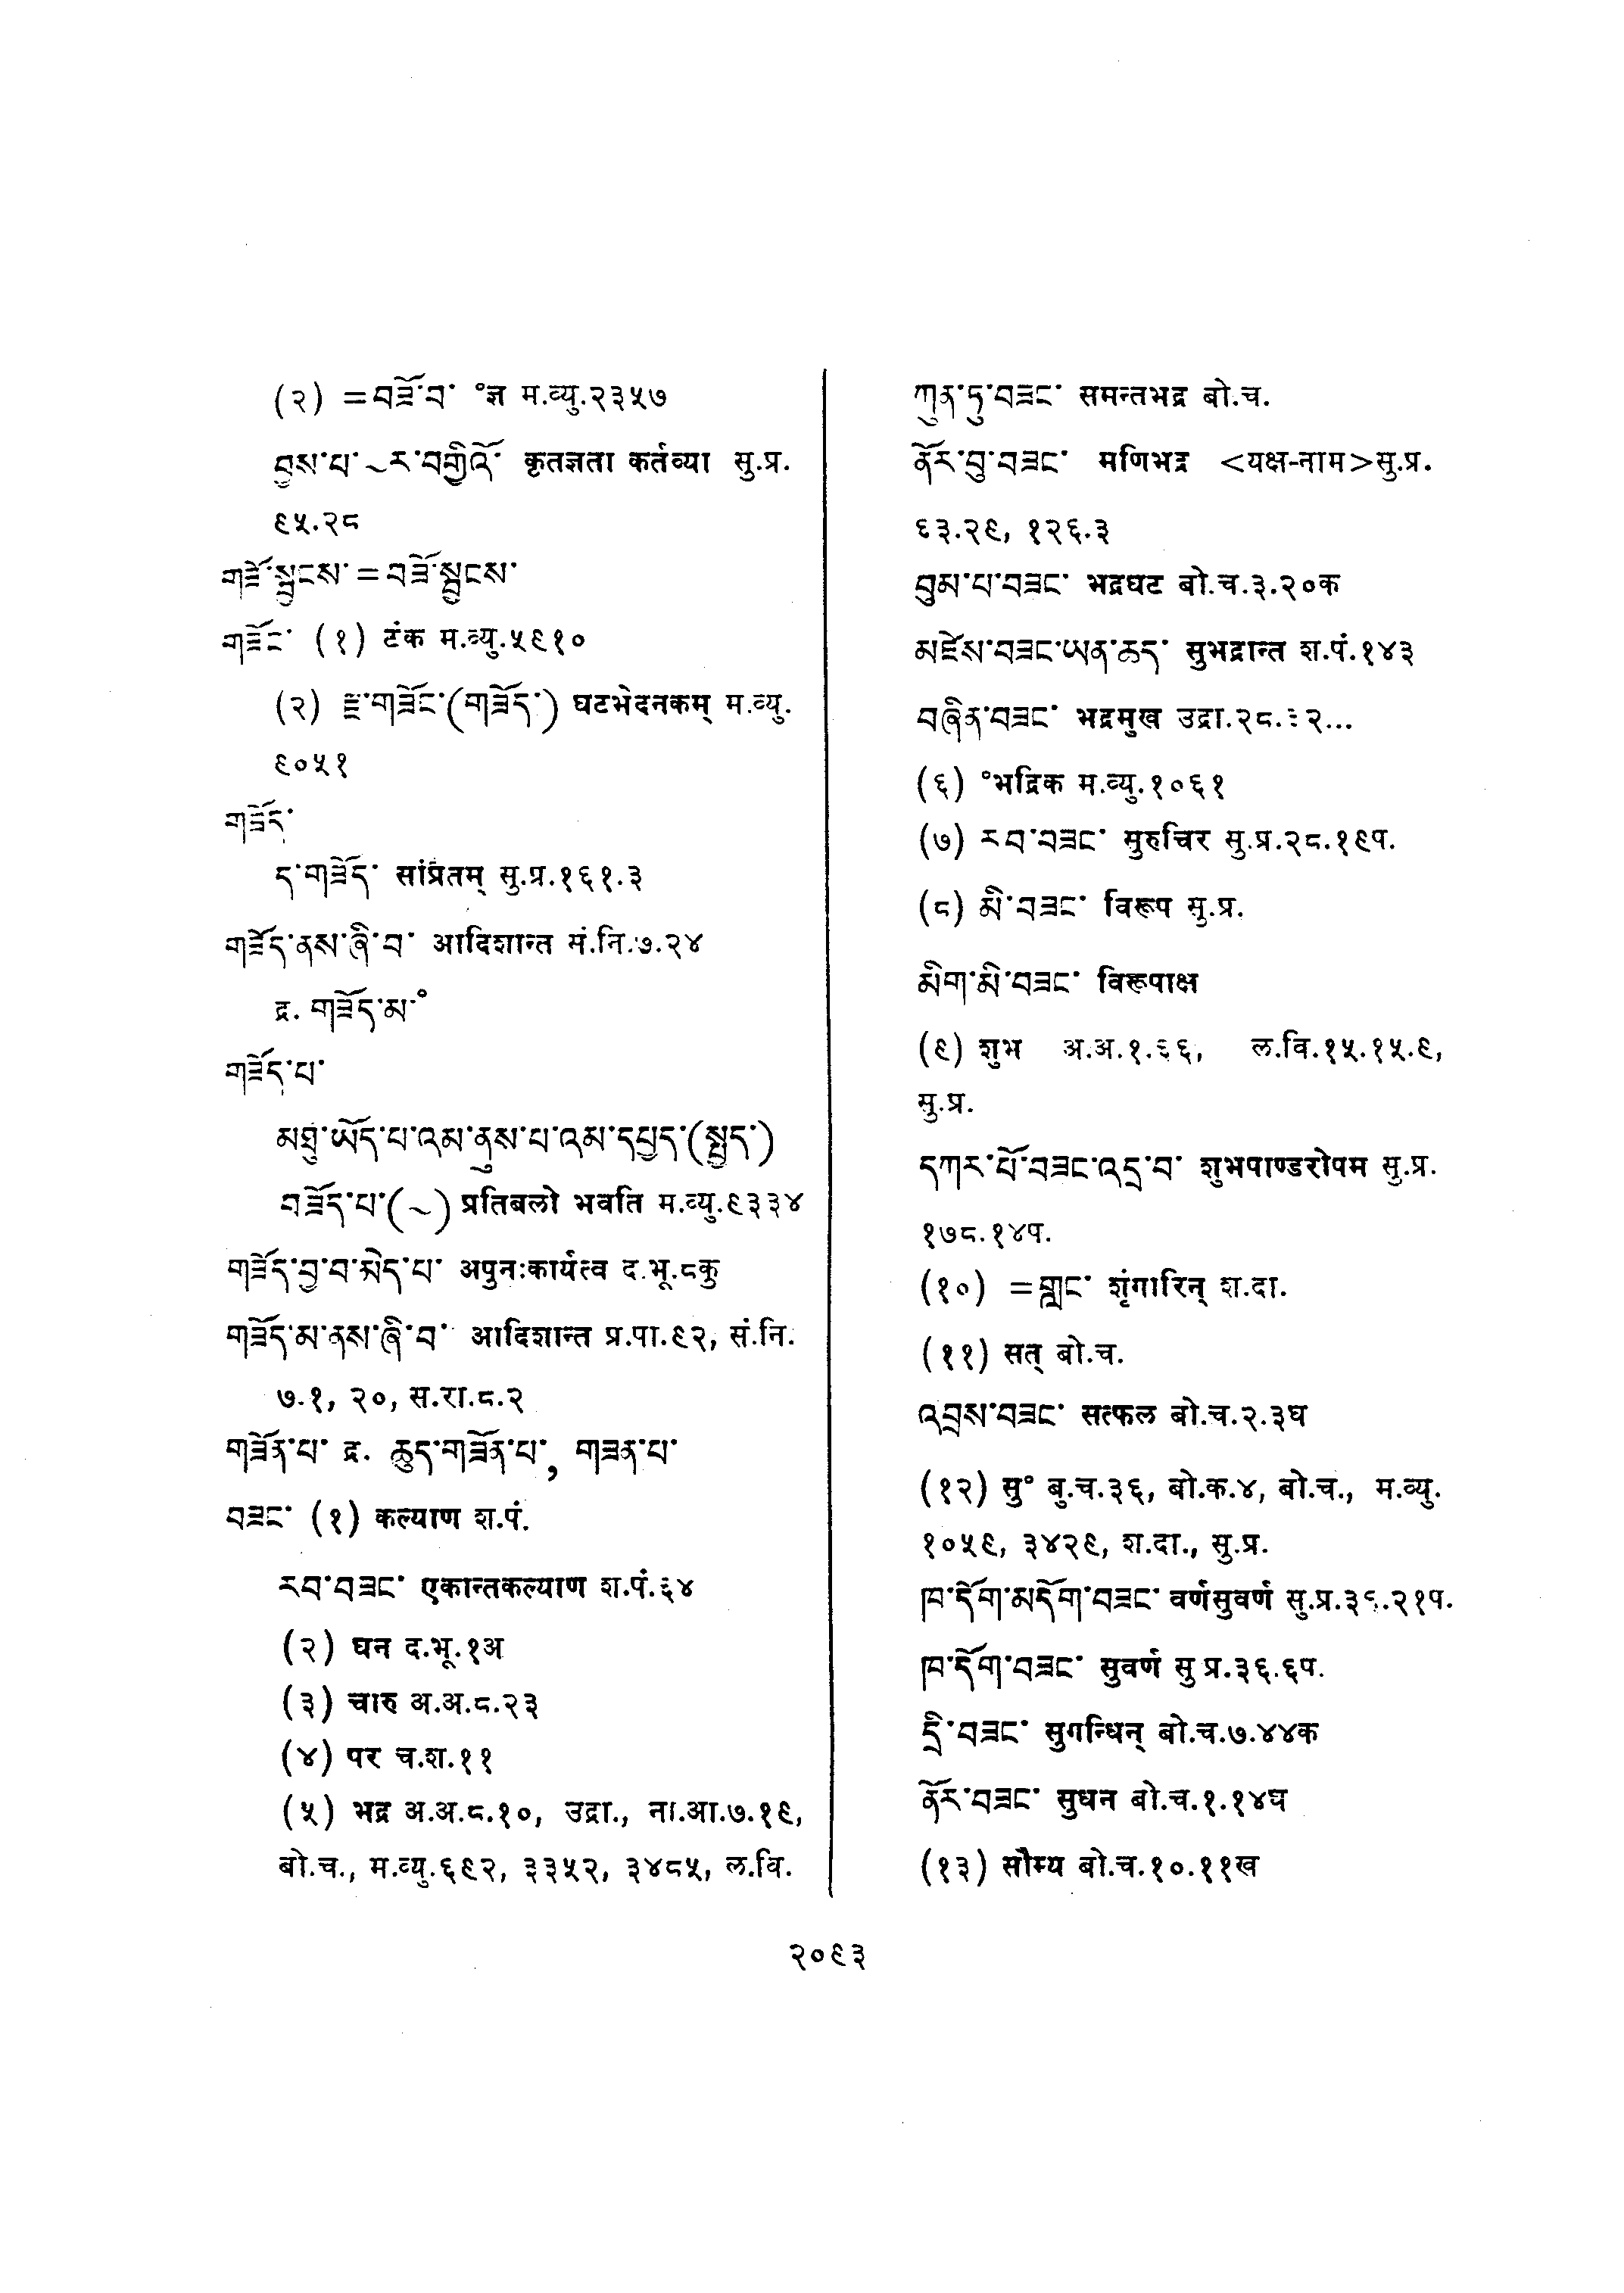 (२) =བཟོ་བ་ °ज्ञ म.व्यु.२३५७
བྱས་པ་~ར་བགྱིའོ་ कृतज्ञता कर्तव्या सु.प्र.
९५.२८
གཟོ་སྦྱངས་ =བཟོ་སྦྱངས་
གཟོང་ (१) टंक म.व्यु.५९१०
(२) རྫ་གཟོང་(གཟོད་) घटभेदनकम् म.व्यु.
९०५१
གཟོད་
ད་གཟོད་ सांप्रतम् सु.प्र.१६१.३
གཟོད་ནས་ཞི་བ་ आदिशान्त सं.नि.७.२४
द्र. གཟོད་མ་°
གཟོད་པ་
མཐུ་ཡོད་པ་འམ་ནུས་པ་འམ་དཔྱད་(སྤྱད་)
བཟོད་པ་(~) प्रतिबलो भवति म.व्यु.९३३४
གཟོད་བྱ་བ་མེད་པ་ अपुनःकार्यत्व द.भू.८कु
གཟོད་མ་ནས་ཞི་བ་ आदिशान्त प्र.पा.९२, सं.नि.
७.१, २०, स.रा.८.२
གཟོན་པ་ द्र. ཆུད་གཟོན་པ་, གཟན་པ་
བཟང་ (१) कल्याण श.पं.
རབ་བཟང་ एकान्तकल्याण श.पं.६४
(२) घन द.भू.१अ
(३) चारु अ.अ.८.२३
(४) पर च.श.११
(५) भद्र अ.अ.८.१०, उद्रा., ना.आ.७.१९,
बो.च., म.व्यु.६९२, ३३५२, ३४८५, ल.वि.
ཀུན་ཏུ་བཟང་ समन्तभद्र बो.च.
ནོར་བུ་བཟང་ मणिभद्र <यक्ष-नाम>सु.प्र.
६३.२९, १२६.३
བུམ་པ་བཟང་ भद्रघट बो.च.३.२०क
མཛེས་བཟང་ཡན་ཆད་ सुभद्रान्त श.पं.१४३
བཞིན་བཟང་ भद्रमुख उद्रा.
(६) °भद्रिक म.व्यु.१०६१
(७) རབ་བཟང་ सुरुचिर सु.प्र.२८.१९प.
(८) མི་བཟང་ विरूप सु.प्र.
མིག་མི་བཟང་ विरूपाक्ष
(९) शुभ अ.अ.१.६६, ल.वि.१५.१५.९,
सु.प्र.
དཀར་པོ་བཟང་འདྲ་བ་ शुभपाण्डरोपम सु.प्र.
१७८.१४प.
(१०) =གླང་ शृंगारिन् श.दा.
(११) सत् बो.च.
འབྲས་བཟང་ सत्फल बो.च.२.३घ
(१२) सु° बु.च.३६, बो.क.४, बो.च., म.व्यु.
१०५९, ३४२९, श.दा., सु.प्र.
ཁ་དོག་མདོག་བཟང་ वर्णसुवर्ण सु.प्र.३६.२१प.
ཁ་དོག་བཟང་ सुवर्ण सु प्र.३६.६प.
དྲི་བཟང་ सुगन्धिन् बो.च.७.४४क
ནོར་བཟང་ सुधन बो.च.१.१४घ
(१३) सौम्य बो.च.१०.११ख
२०९३